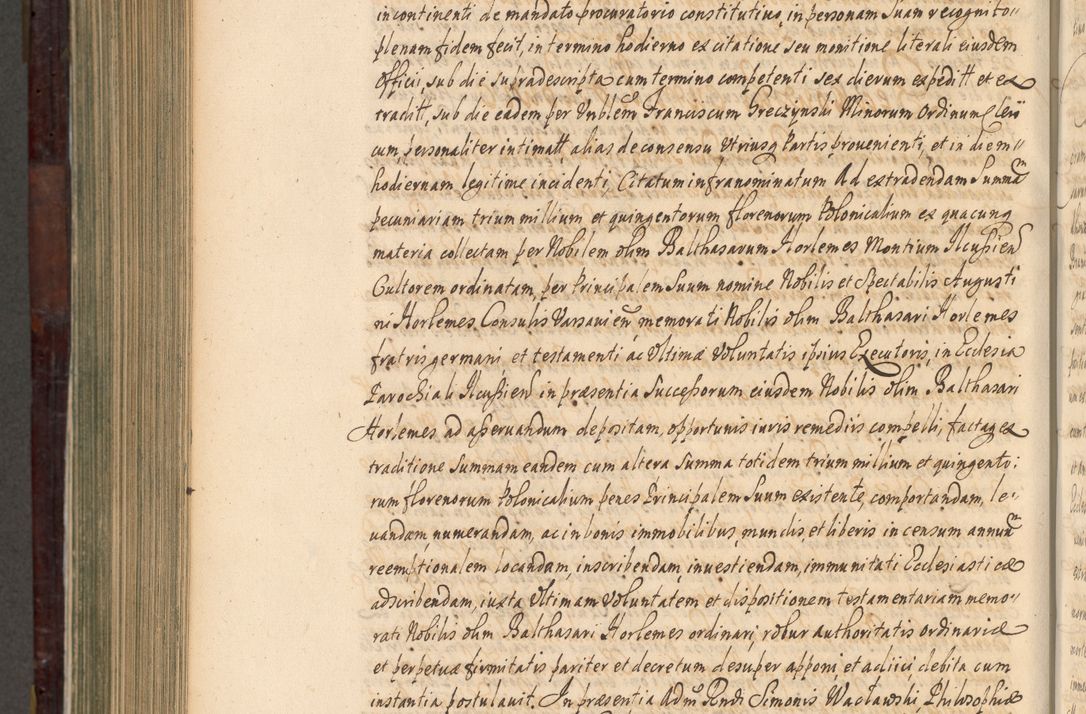 in continenti de mandato procuratorio constitutivo, in personam suam recognito
plenam fidem fecit, in termino hodierno ex citatione seu monitione literali eiusdem
Officii, sub die supradescripta cum termino competenti sex dierum expeditt et ex
traditt, sub die eadem per Vnblem Franciscum Greczynski Minorum Ordinum Cleri
cum, personaliter intimatt, alias de consensu Vtriusq Partis provenienti, et in diem
hodiernam legitime incidenti, Citatum infranominatum Ad extradendam Summam
pecuniariam trium millium et quingentorum florenorum Polonicalium ex quacunq
materia collectam per Nobilem olim Balthasarum Horlemes Montium Ilcussien
Cultorem ordinatam, per Principalem Suum nomine Nobilis et Spectabilis Augusti
ni Horlemes Consulis Varsavien memorati Nobilis olim Balthasari Horlemes
fratris germani, et testamenti ac Vltimæ Voluntatis ipsius Executoris, in Ecclesia
Parochiali Ilcussien in præsentia Successorum eiusdem Nobilis olim Balthasari
Horlemes ad asservandum depositam, opportunis iuris remediis compelli, factaq ex
traditione Summam eandem cum altera Summa totidem trium millium et quingento:
rum florenorum Polonicalium penes Principalem Suum existente, comportandam, le:
vandam, numerandam, ac in bonis immobilibus, mundis, et liberis in censum annuum
reemptionalem locandam, inscribendam, investiendam, immunitati Ecclesiasticæ
adscribendam, iuxta Vltimam Voluntatem et dispositionem testamentariam memo:
rati Nobilis olim Balthasari Horlemes ordinari, robur authoritatis ordinariæ
et perpetuæ firmitatis pariter et decretum desuper apponi, et adiici, debita cum
instantia postulavit. In præsentia Admo Rndi Simonis Wacławski Philosophiæ